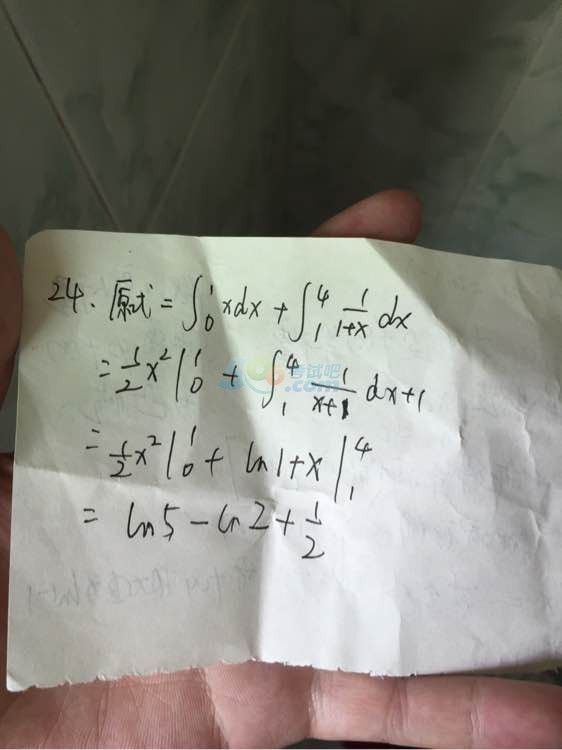 24. 原式 = ∫₀¹ xdx + ∫₁⁴ 1/(1+x) dx
= 1/2 x² |₀¹ + ∫₁⁴ 1/(x+1) dx+1
= 1/2 x² |₀¹ + ln1+x |₁⁴
= ln5 - ln2 + 1/2
考试吧
.com